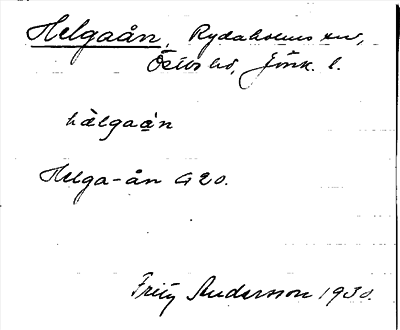 Helgaån, Rydaholms sn,
Östbo hd, Jönk. l.
hälgaån
Helga-ån G 20.
Fritz Andersson 1930.